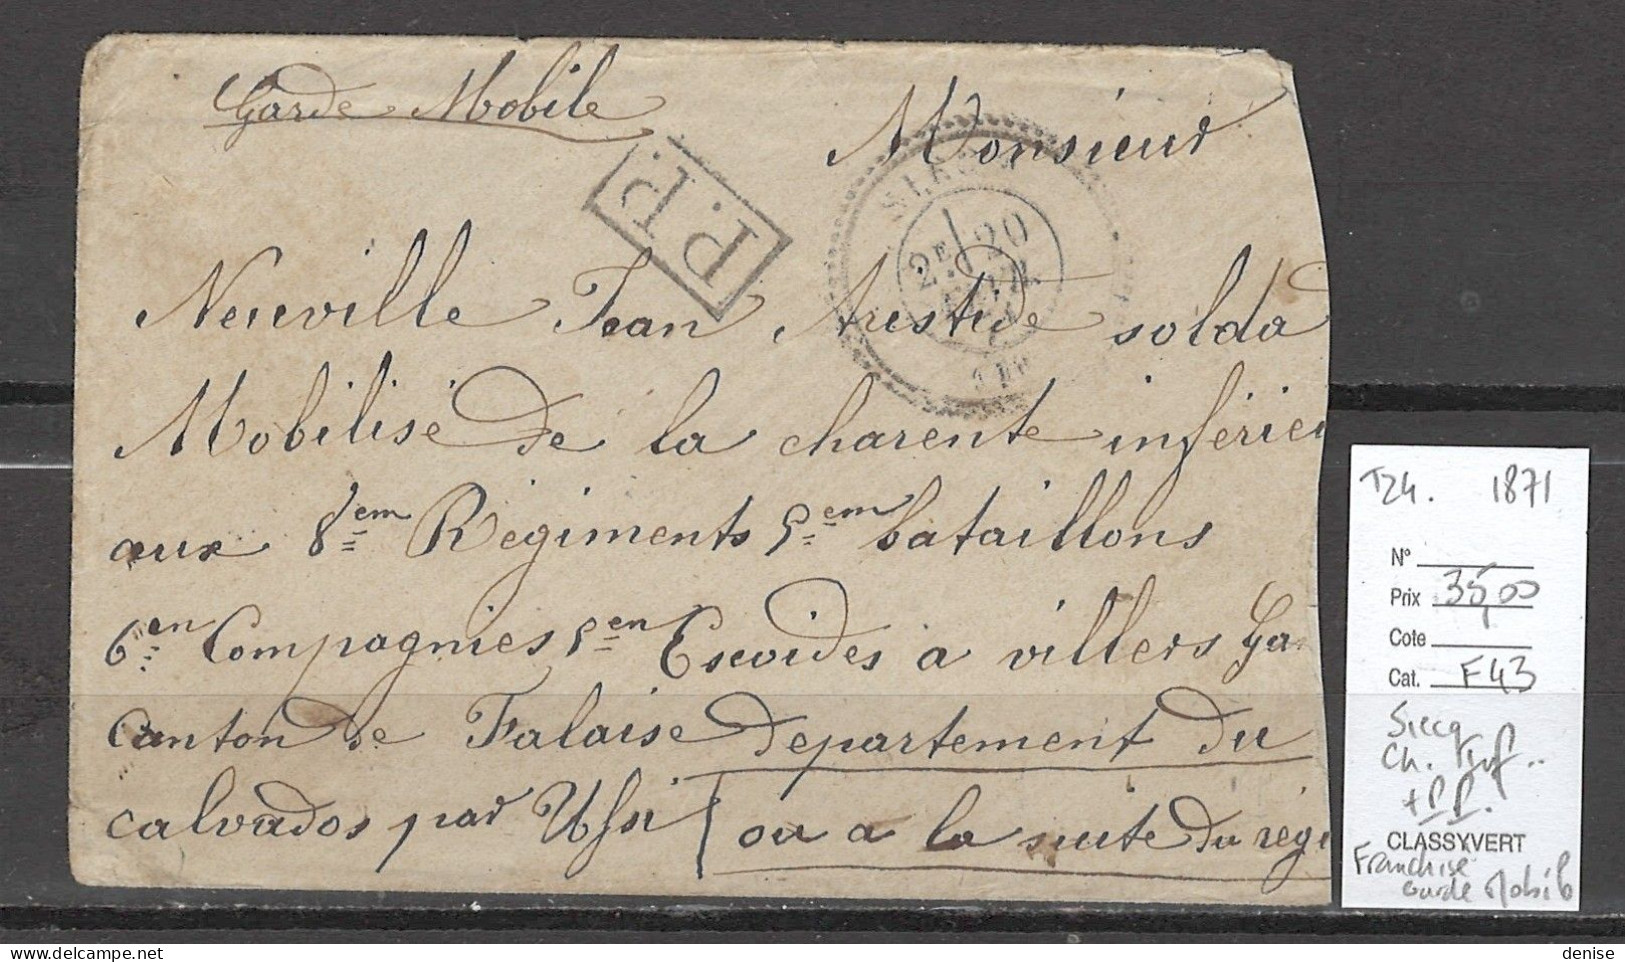 Garde Mobile
Monsieur
P.P.
SIECQ
2E 20
Neuville Jean Aristide solda
Mobilisé de la charente inférieu
aux 8em Régiments 5em bataillons
6em Compagnies 5en Escvides a villers Ga
Canton de Falaise departement du
calvados par Ussi ou a la suite du régi
T24. 1871
N°
Prix 35,00
Cote
Cat. F43
Siecq
Ch. Inf..
+ P.P.
CLASSYVERT
Franchise
Garde Mobile
denise